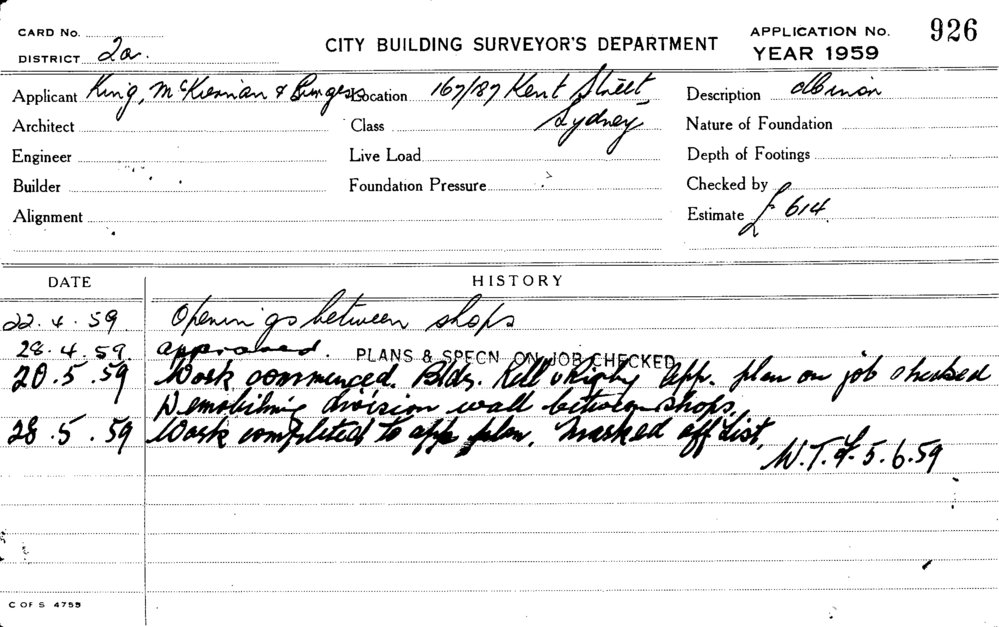 CARD No.
DISTRICT 2a.
CITY BUILDING SURVEYOR'S DEPARTMENT
APPLICATION No. 926
YEAR 1959
Applicant King, McKiernan & Burgess
Location 167/187 Kent Street
Sydney
Description
Architect
Class
Nature of Foundation
Engineer
Live Load
Depth of Footings
Builder
Foundation Pressure
Checked by
Alignment
Estimate £ 614
DATE HISTORY
22.4.59 Openings between shops
28.4.59 approved. PLANS & SPECN ON JOB CHECKED
20.5.59 Work commenced. Bldrs. Kell & Rigby app. plan on job checked
Demolishing division wall between shops.
28.5.59 Work completed to app plan. Marked off List.
5.6.59
C OF S 4759